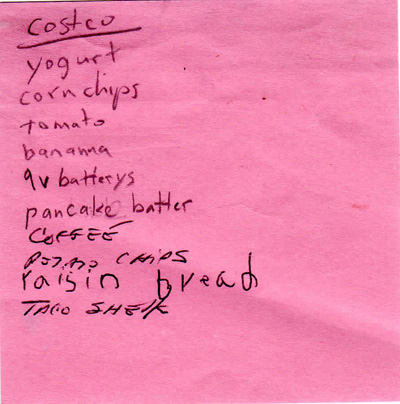 costco
yogurt
corn chips
tomato
bananna
9v batterys
pancake batter
COFFEE
POTATO CHIPS
raisin bread
TACO SHELL